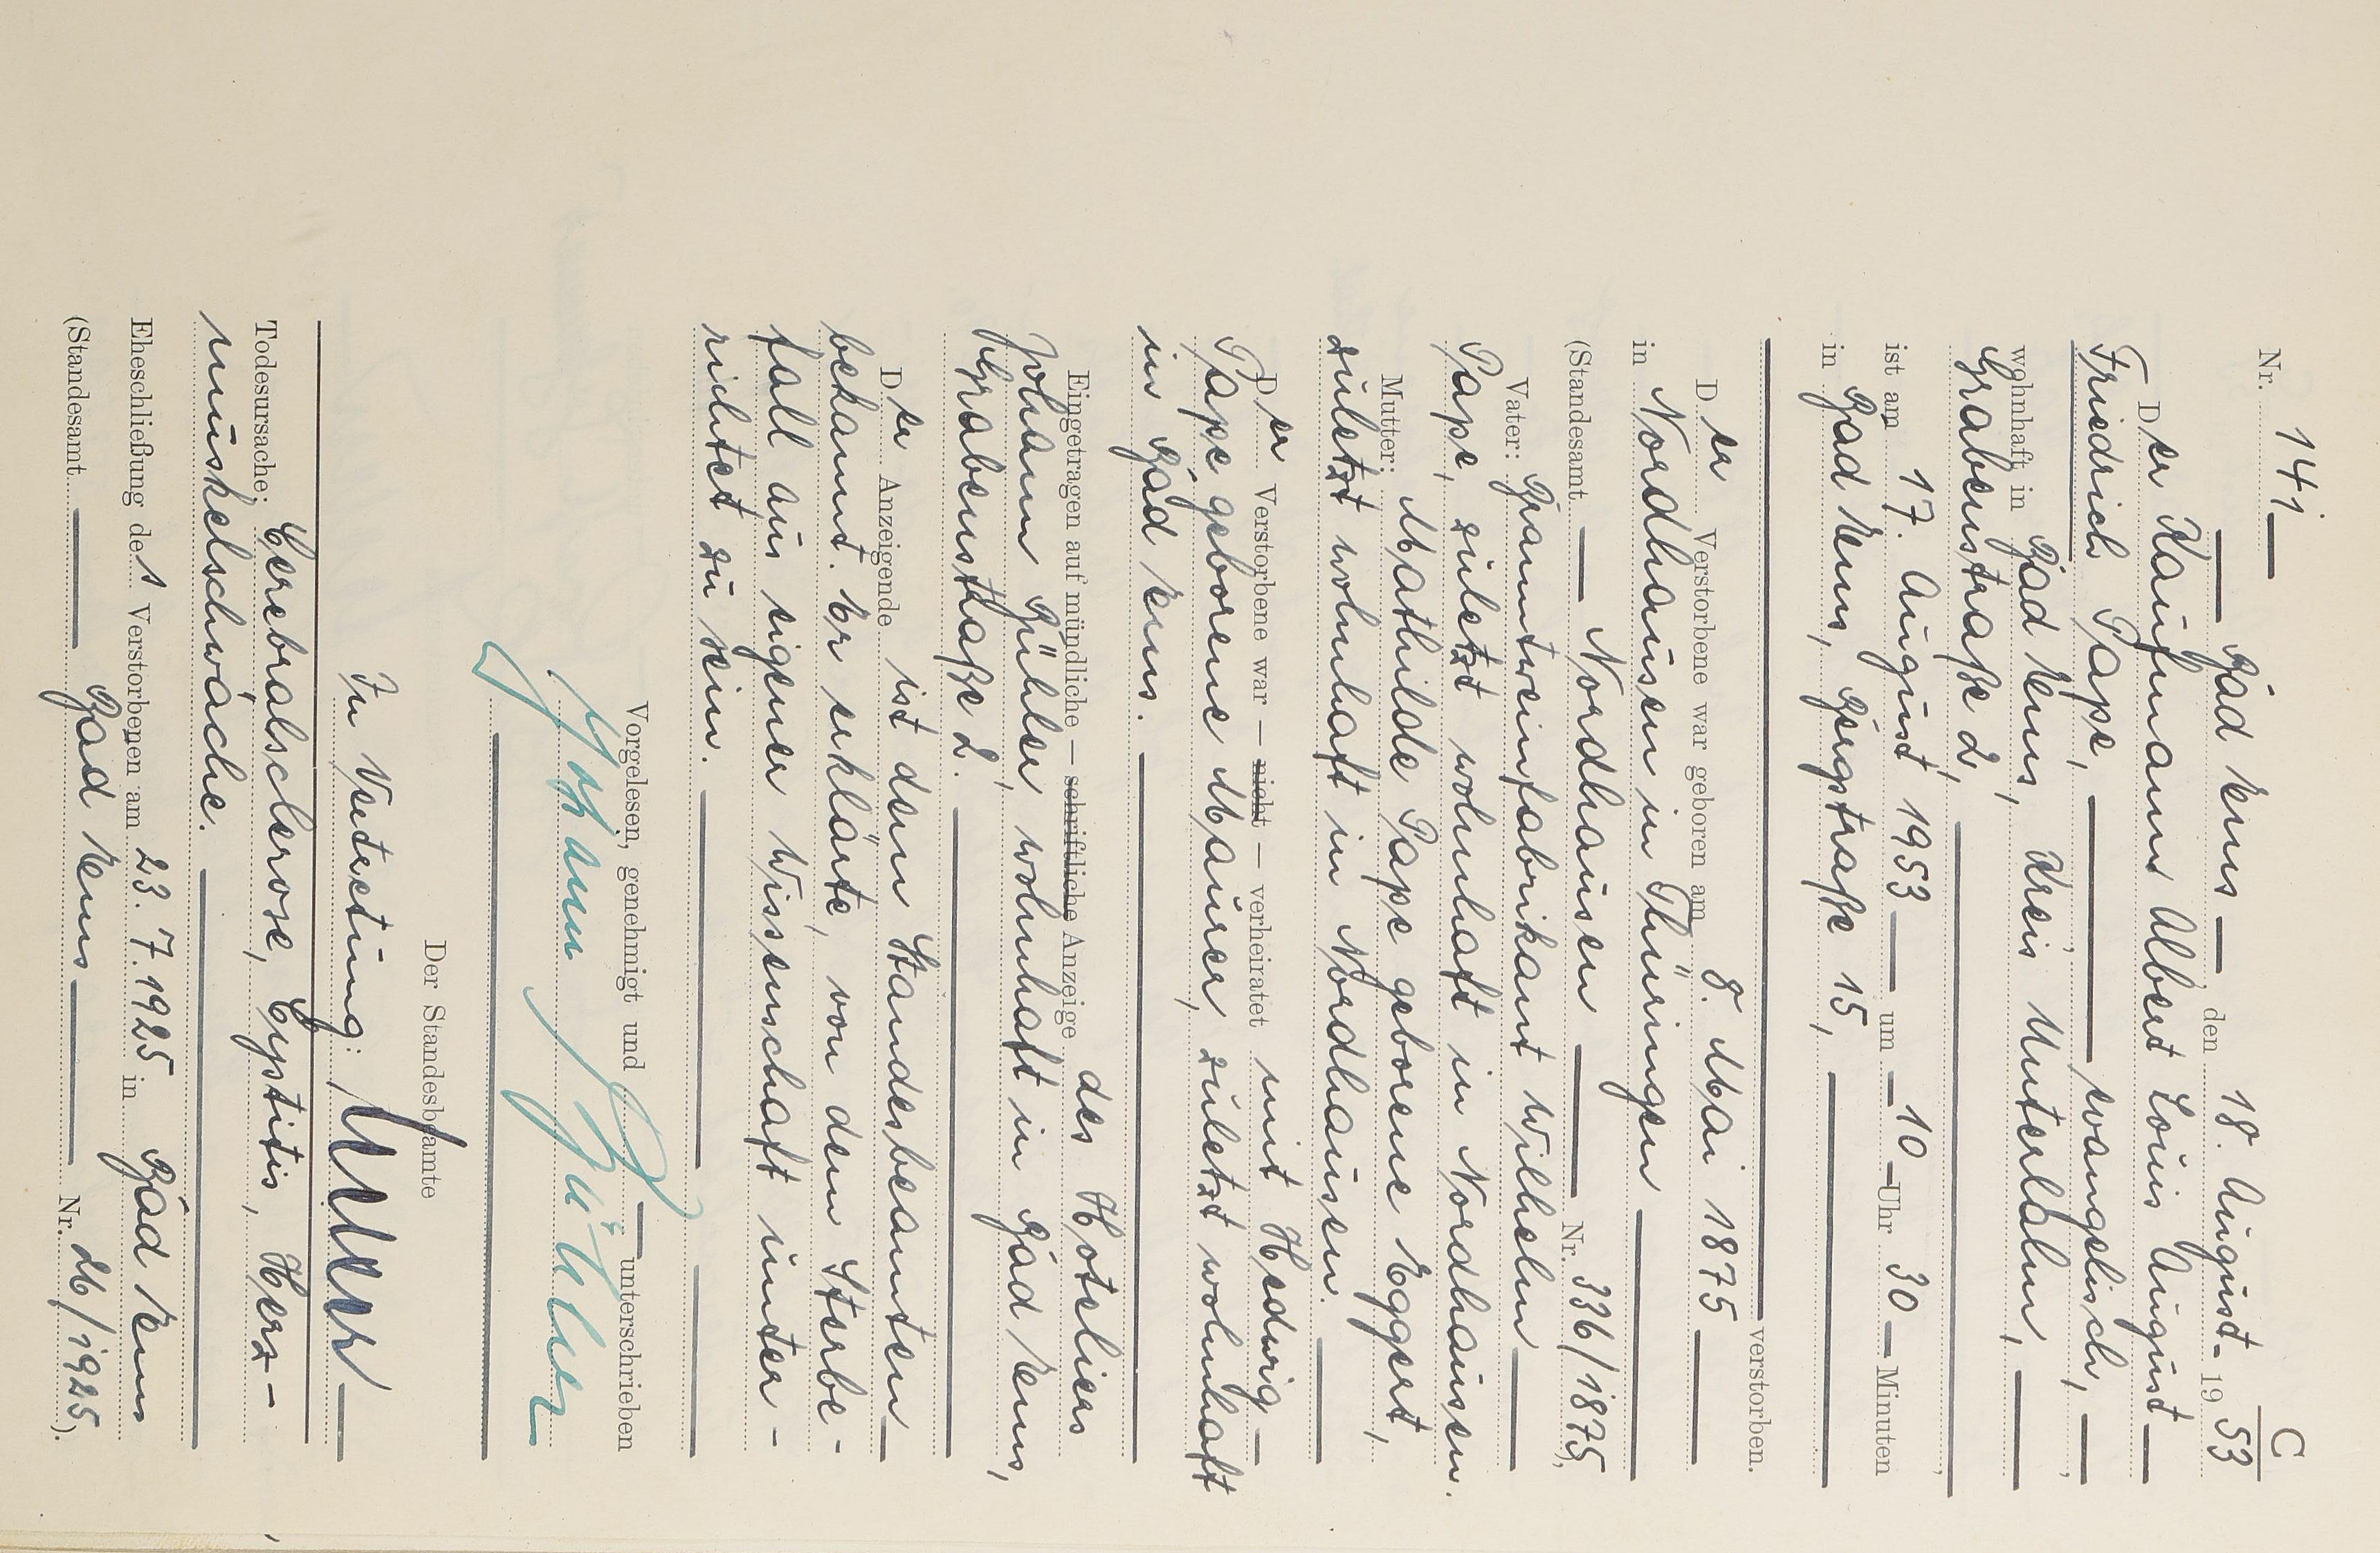 C
Nr. 141
Bad Ems den 18. August 19 53
Der Kaufmann Albert Louis August
Friedrich Pape, evangelisch,
wohnhaft in Bad Ems, Kreis Unterlahn,
Grabenstraße 2,
ist am 17. August 1953 um 10 Uhr 30 Minuten
in Bad Ems, Bergstraße 15,
verstorben.
Der Verstorbene war geboren am 8. Mai 1875
in Nordhausen in Thüringen
(Standesamt Nordhausen Nr. 336/1875).
Vater: Branntweinfabrikant Wilhelm
Pape, zuletzt wohnhaft in Nordhausen.
Mutter: Mathilde Pape geborene Eggert,
zuletzt wohnhaft in Nordhausen.
Der Verstorbene war — nicht — verheiratet mit Hedwig
Pape geborene Maurer, zuletzt wohnhaft
in Bad Ems.
Eingetragen auf mündliche — schriftliche Anzeige des Hoteliers
Johann Bühler, wohnhaft in Bad Ems,
Grabenstraße 2.
Der Anzeigende ist dem Standesbeamten
bekannt. Er erklärte, von dem Sterbe-
fall aus eigener Wissenschaft unter-
richtet zu sein.
Vorgelesen, genehmigt und unterschrieben
Johann Bühler
Der Standesbeamte
In Vertretung:
Todesursache: Cerebralsclerose, Cystitis, Herz-
muskelschwäche.
Eheschließung des Verstorbenen am 23. 7. 1925 in Bad Ems
(Standesamt Bad Ems Nr. 26/1925).